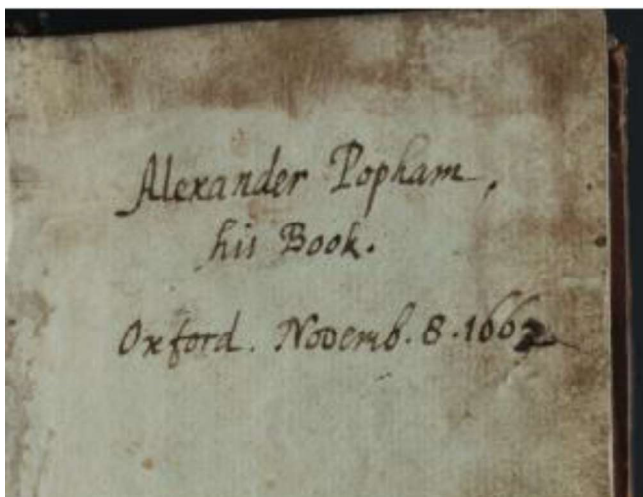 Alexander Popham,
his Book.
Oxford. Novemb. 8. 1662